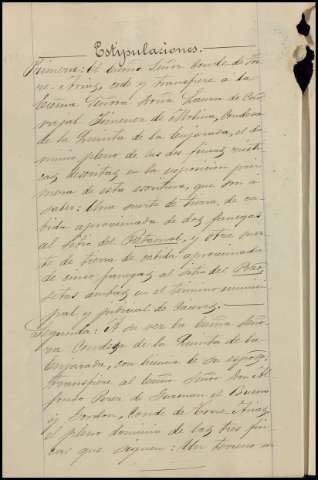 Estipulaciones.—
Primera: El Exmo Señor Conde de To-
rre-Arias, cede y transfiere á la
Excma Señora Doña Laura de Car-
vajal Jimenez de Molina, Condesa
de la Quinta de la Enjarada, el do-
minio pleno de las dos fincas rústi-
cas descritas en la exposición pri-
mera de esta escritura, que son á
saber: Una suerte de tierra, de ca-
bida aproximada de dos fanegas
al sitio del Retamal, y otra suer-
te de tierra de cabida aproximada
de cinco fanegas al sitio del
sitas ambas en el término munici-
pal y partido de Cáceres.—
Segunda: A su vez la Excma Seño-
ra Condesa de la Quinta de la
Enjarada, con licencia de su esposo,
transfiere al Excmo Señor Don Al-
fredo Perez de Guzman el Bueno
y Gordon, Conde de Torre-Arias,
el pleno dominio de las tres fin-
cas que siguen: Un terreno